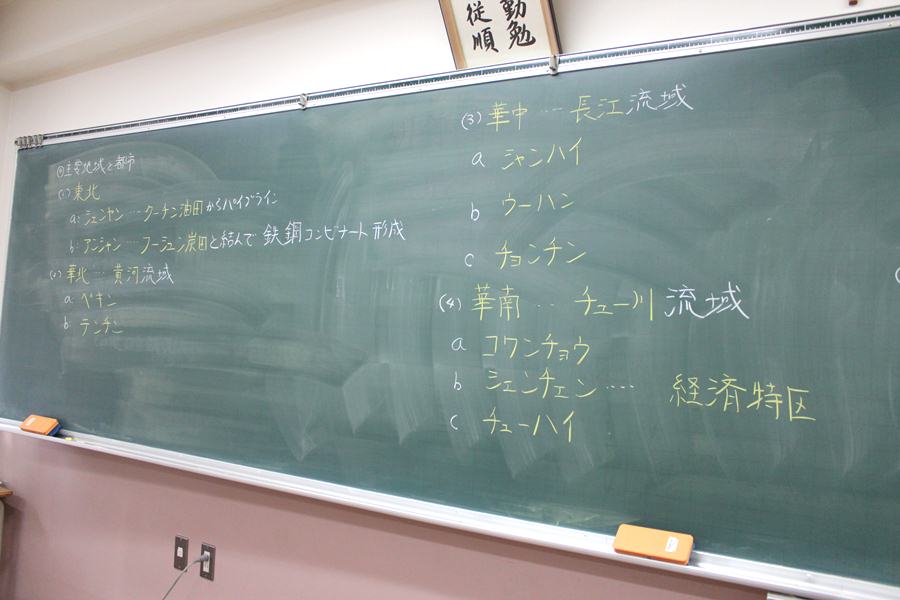 勤勉
従順
主要地域と都市
(1) 東北
a: シェンヤン … ターチン油田からパイプライン
b: アンシャン … フーシュン炭田と結んで 鉄鋼コンビナート形成
(2) 華北 … 黄河流域
a ペキン
b テンチン
(3) 華中 … 長江流域
a シャンハイ
b ウーハン
c チョンチン
(4) 華南 … チュー川流域
a コワンチョウ
b シェンチェン …. 経済特区
c チューハイ